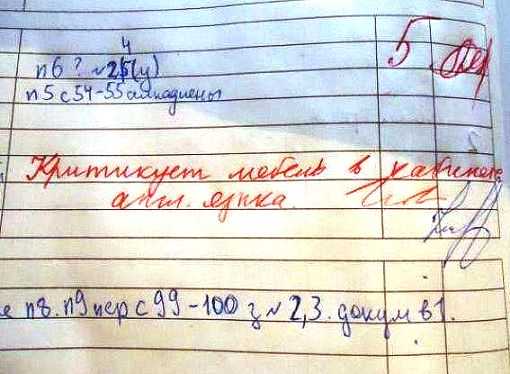 п6 ? №25(у) 4 5
п5 с54-55
Критикует мебель в кабинете
англ. языка.
п8. п9 пер с99-100 з№2,3. докум в1.